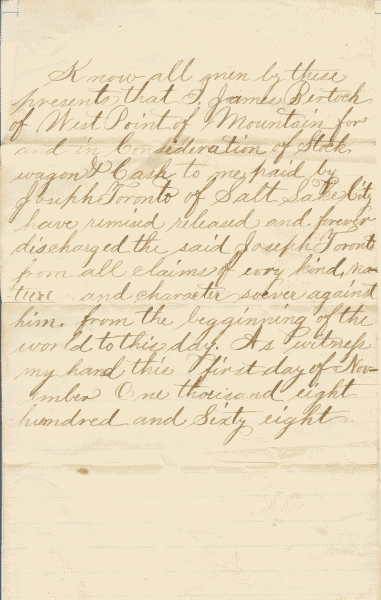 Know all men by these
presents that I. James Bertoch
of West Point of Mountain for
and in Consideration of Stock
wagon & Cash to me paid by
Joseph Toronto of Salt Lake City
have remised released and forever
discharged the said Joseph Toront
from all claims of evry kind, na-
ture and character soever against
him. from the begginning of the
world to this day. As witness
my hand this first day of Nov-
ember One thousand eight
hundred and Sixty eight